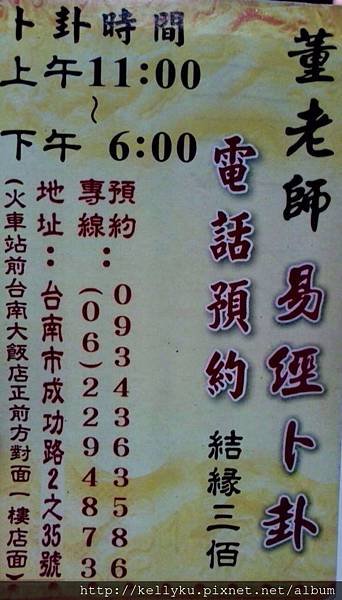 董老師 易經卜卦
電話預約 結緣三佰
卜卦時間
上午11:00
~
下午 6:00
預約：0934363586
專線：(06)2294873
地址：台南市成功路2之35號
(火車站前台南大飯店正前方對面一樓店面)
http://kellyku.pixnet.net/album